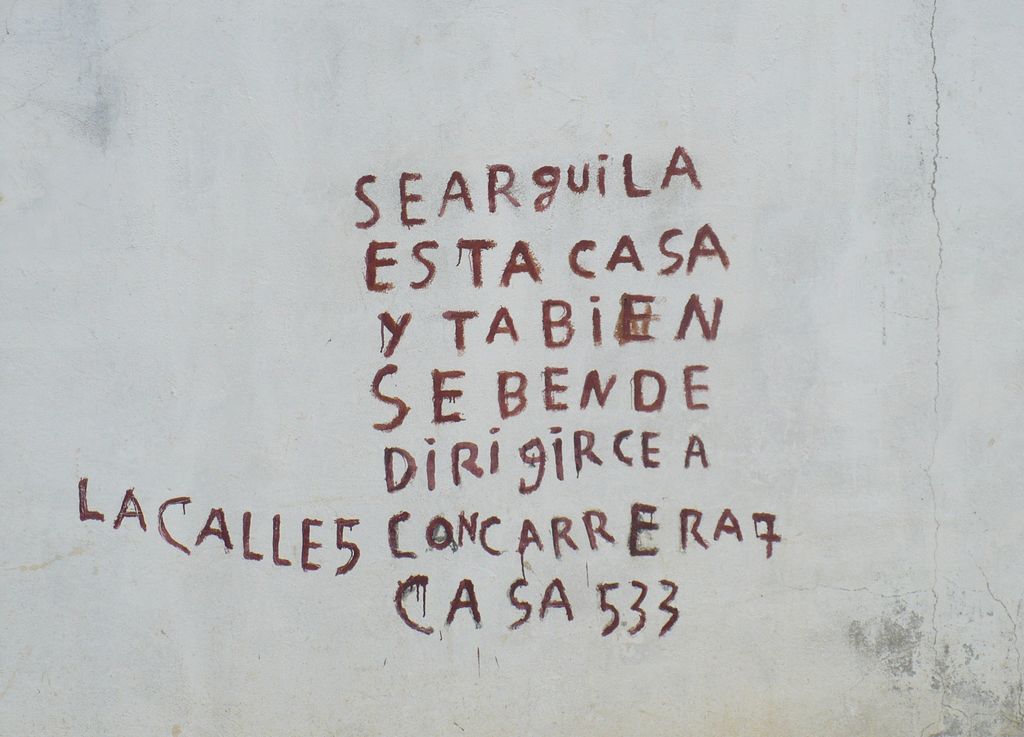 SE ARguiLA
ESTA CASA
Y TABiEN
SE BENDE
DiRigiRCE A
LA CALLE 5 CON CARRERA 7
CASA 533